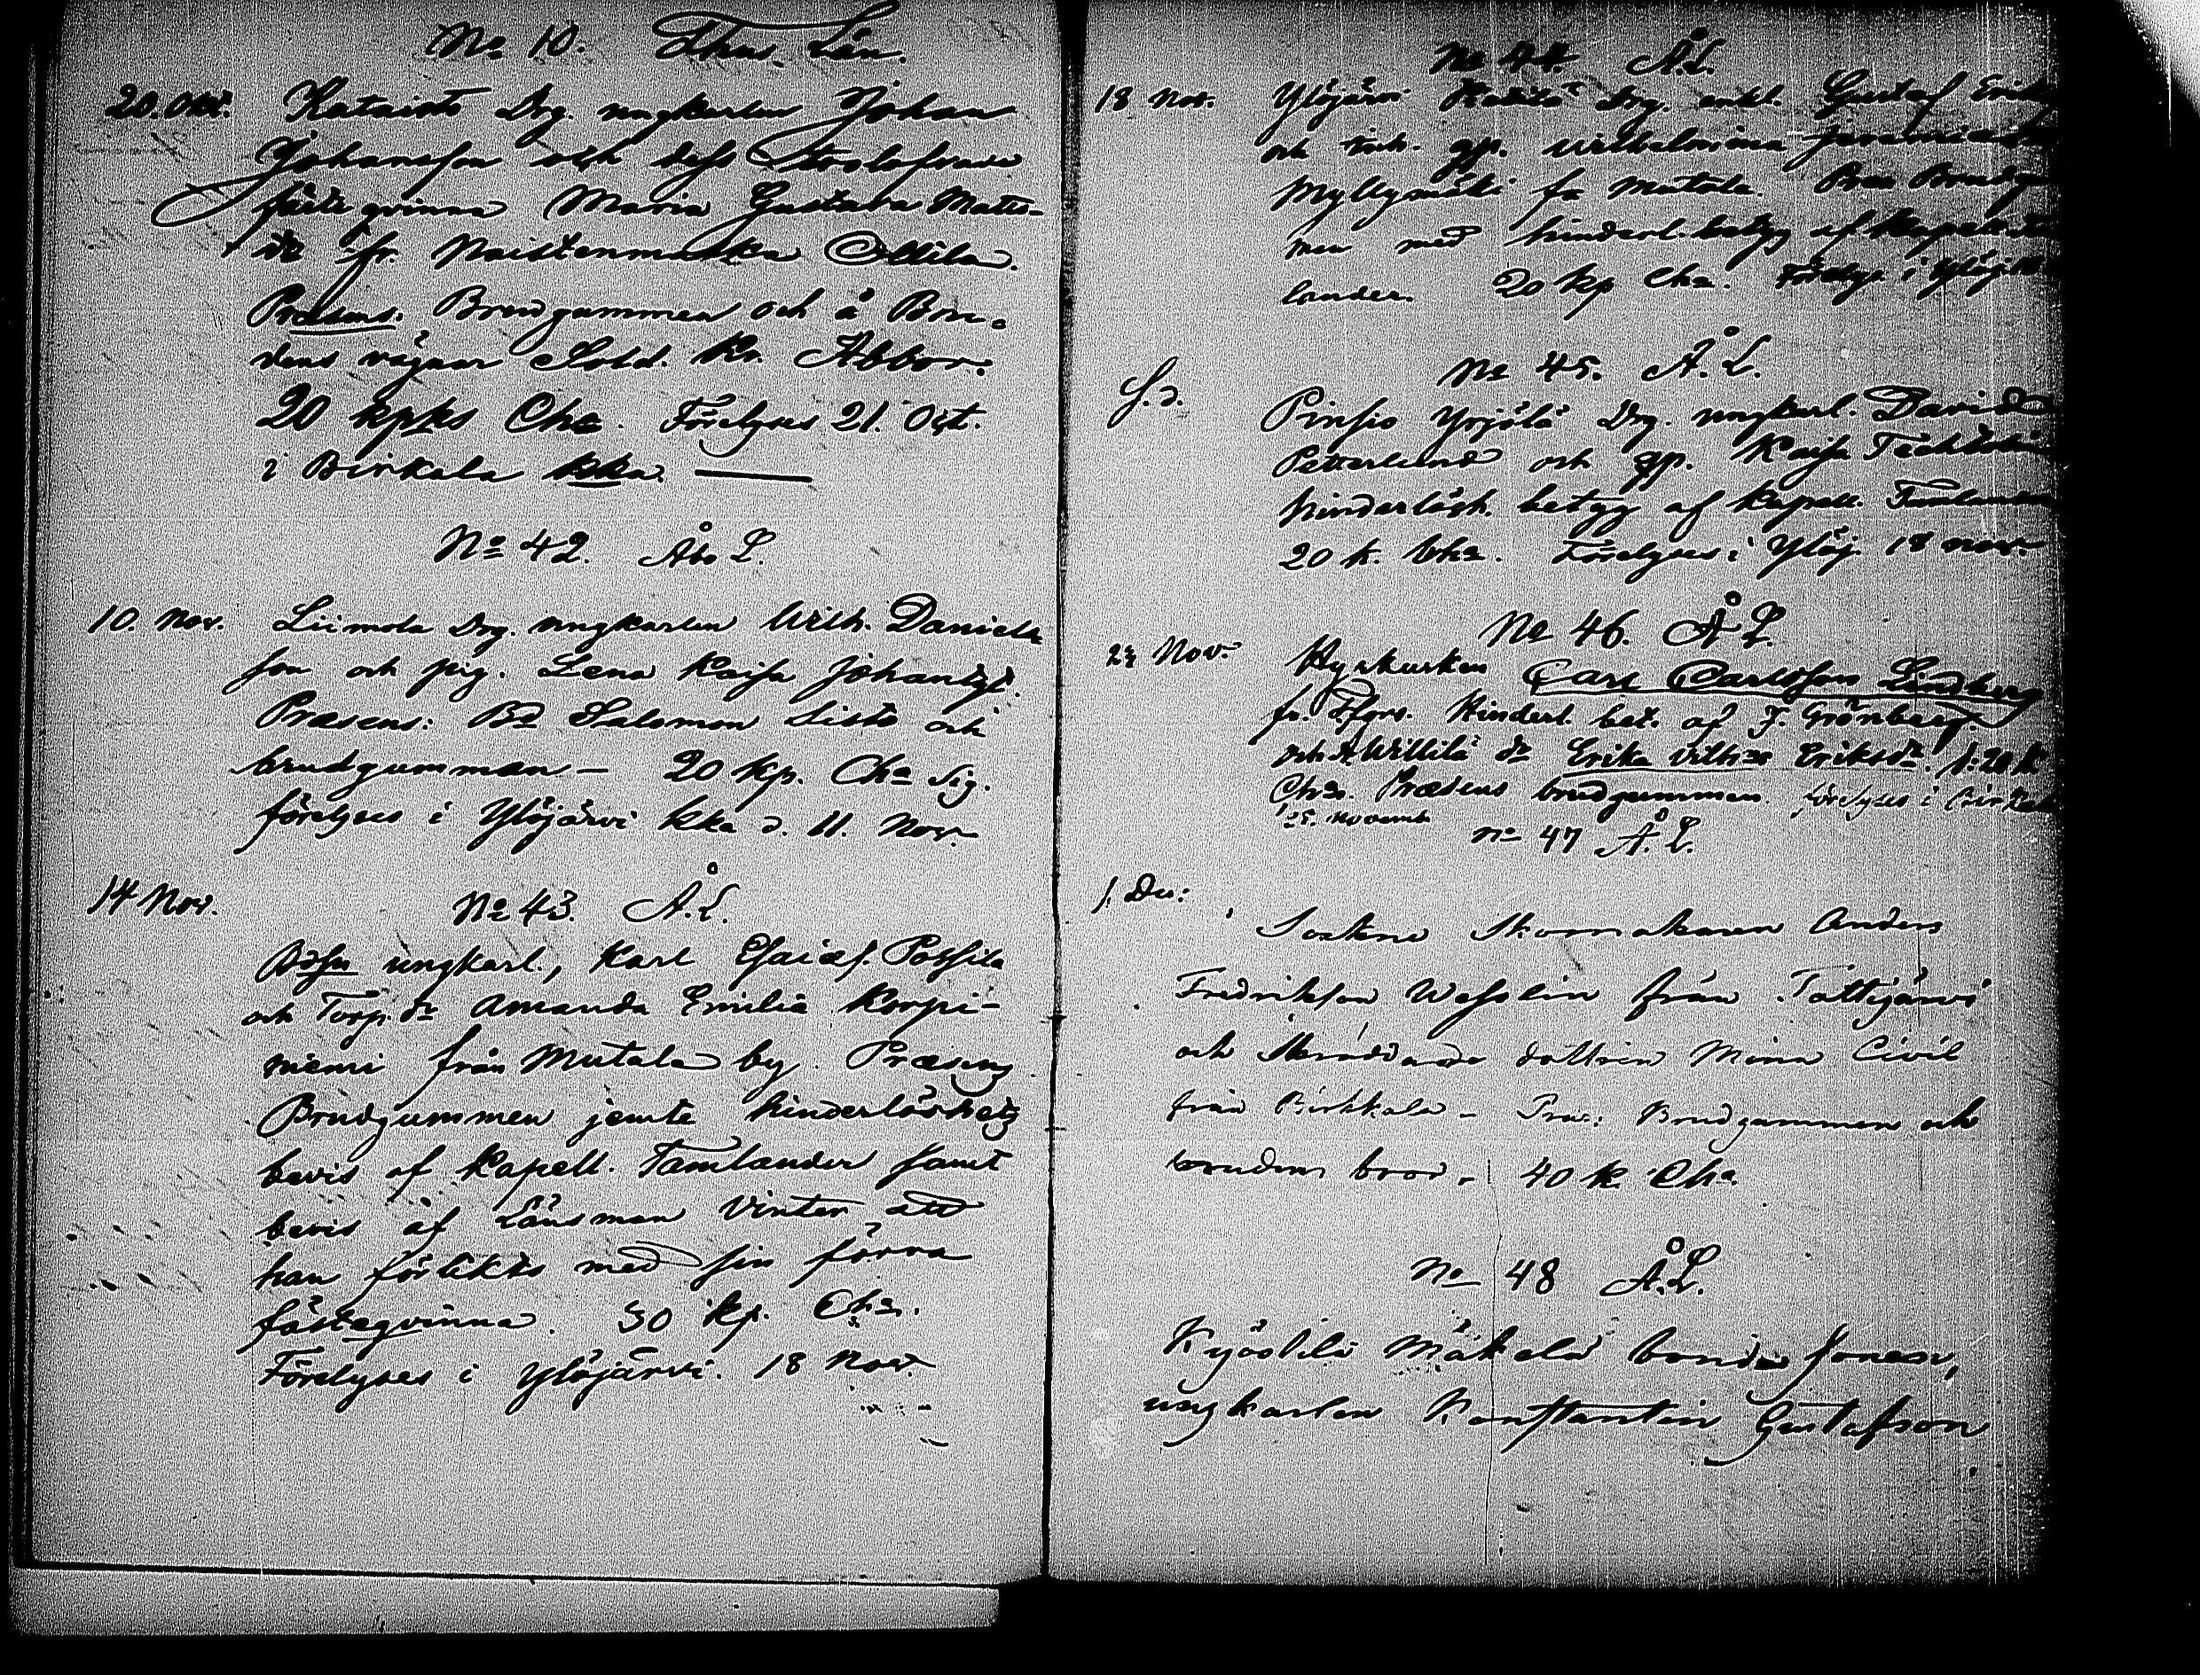 No 10. Thus. Län.
20. Okt. Kataisto Drg. ungkarlen Johan
Johansson och dess
fästeqvinna Maria Gustava Matts-
dr fr. Naistenmatka Ollila.
Præsens. Brudgummen och å Bru-
dens vägnar Sold. Kr. Abbor.
20 kpks Cha. Förelyses 21. Oct.
i Birkala kka.
No 42. Åbo L.
10. Nov. Liimola Drg. ungkarlen Wilh. Daniels
son och pig. Lena Kaisa Johansd.
Præsens: Bd Salomon Sisto och
brudgumman – 20 kp. Cha Sig.
förelyses i Ylöjärvi kka d. 11. Nov.
14 Nov. No 43. Å.L.
Bdsn ungkarl., Karl Esaias. Potsila
och Torp. dr Amanda Emilia Korpi-
niemi från Mutala by. Præsens
Brudgummen jemte hinderlöshets
bevis af Kapell. Tamlander samt
bevis af Länsman Vinter att
han förlikts med sin förra
fästeqvinna. 30 kp. Cha.
Förelyses i Ylöjärvi. 18 Nov.
No 44. Å.L.
18 Nov. Ylöjärvi Drg. enkl. Gustaf Eriks
och inh. qp. Wilhelmina
Myllymäki fr Mutala. Præs Brudgu
men med hinderl. betyg af Kapell
lander. 20 kp Cha. Förelys. i Ylöj.
S.d. No 45. Å.L.
Pinsio Yrjölä Drg. ungkarl. David
Petterlund och qp. Kaisa
hinderlösh. betyg af Kapell. Tamlander
20 k. Cha. Förelyses i Ylöj. 18 nov.
No 46. Å L.
23 Nov. Hyrkusken Carl Carlsson Lindberg
fr. T.fgrs. Hinderl. bet. af F. Grönberg.
och A. Willilä dr Erika Vilh:a Eriksdr. f: 20 k
Cha. Præsens brudgummen. förelyses i Birkala
25. novemb.
No 47 Å.L.
1. Dec: Sockne Skomakaren Anders
Fredrikson Wesslin från Tottijärvi
och Skräddare dottren Mina Civil
från Birkkala – Præs: Brudgummen och
brudens bror. 40 k. Cha.
No 48 Å.L.
Kyöstilä Mäkelä bonde sonen,
ungkarlen Konstantin Gustafsson